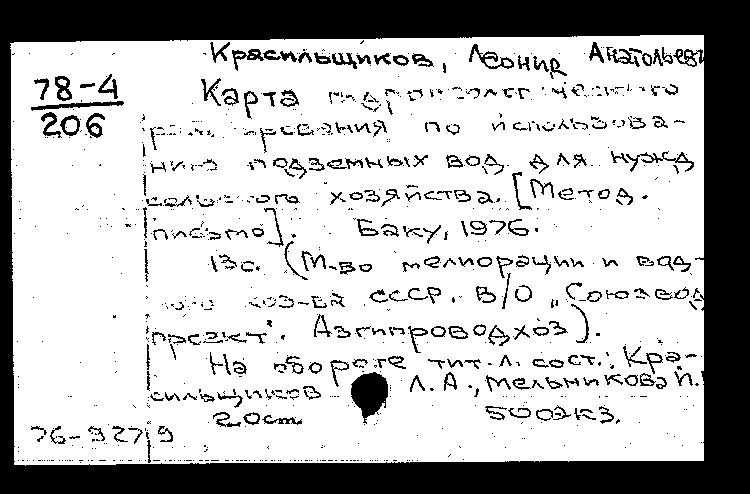 Красильщиков, Леонид Анатольев
78-4
206
Карта гидрогеологического
районирования по использова-
нию подземных вод для нужд
сельского хозяйства. [Метод.
письмо]. Баку, 1976.
13с. (М-во мелиорации и вод-
ного хоз-ва СССР. В/О „Союзвод
проект". Азгипроводхоз).
На обороте тит. л. сост.: Кра-
сильщиков Л.А., Мельникова И.
20cm 500экз.
76-92719